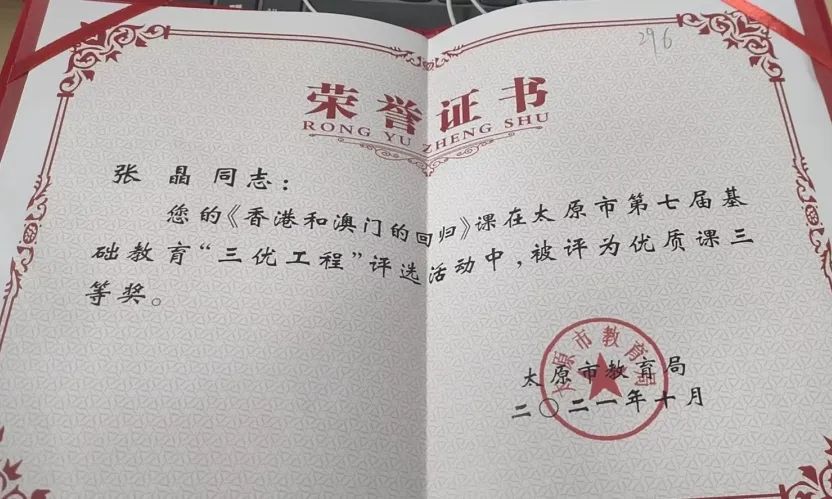 296
荣誉证书
RONG YU ZHENG SHU
张晶同志：
您的《香港和澳门的回归》课在太原市第七届基
础教育“三优工程”评选活动中，被评为优质课三
等奖。
太原市教育局
太原市教育局
二〇二一年十月